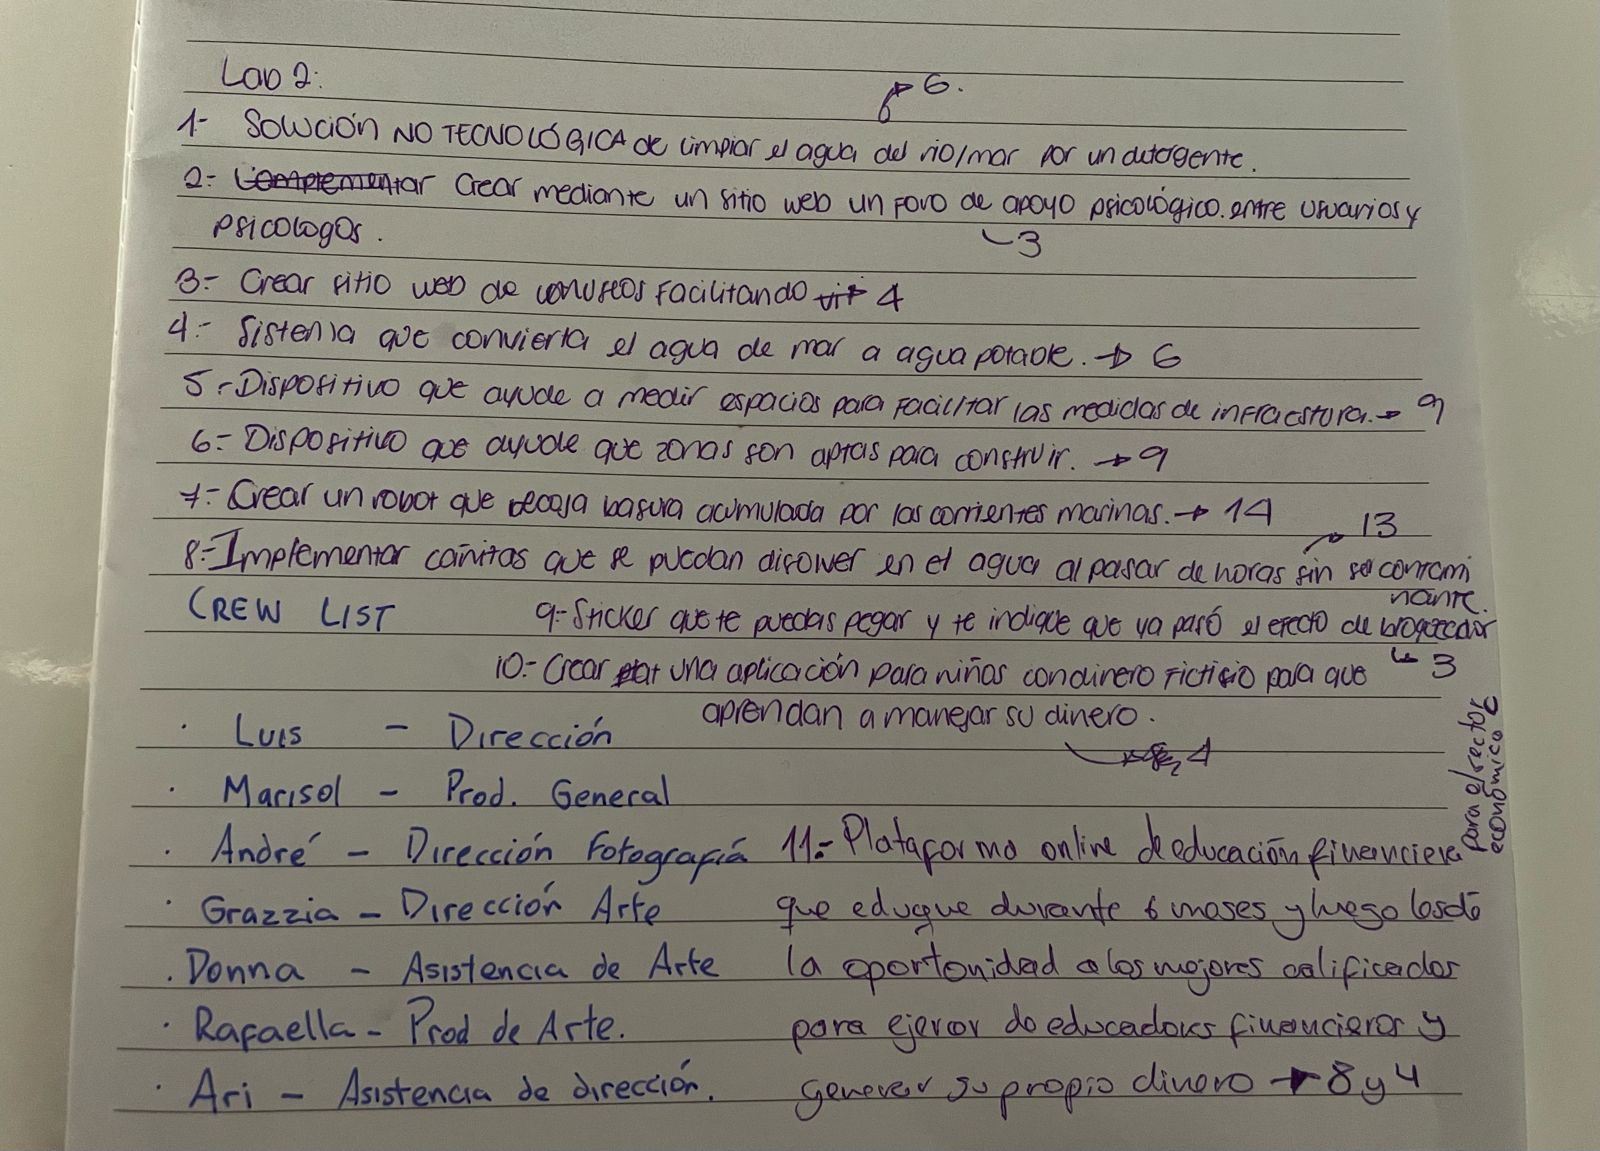 Lab 2:
→ 6.
1- Solución NO TECNOLÓGICA de limpiar el agua del rio/mar por un detergente.
2- Complementar Crear mediante un sitio web un foro de apoyo psicológico. entre usuarios y
psicologos.
→ 3
3- Crear sitio web de consejos facilitando → 4
4- Sistema que convierta el agua de mar a agua potable. → 6
5- Dispositivo que ayude a medir espacios para facilitar las medidas de infraestora. → 9
6- Dispositivo que ayude que zonas son aptas para construir. → 9
7- Crear un robot que recoja basura acumulada por las corrientes marinas. → 14
→ 13
8- Implementar cañitas que se puedan disolver en el agua al pasar de horas sin ser contami
nante.
CREW LIST
9- Sticker que te puedas pegar y te indique que ya pasó el efecto de bloqueador
→ 3
10- Crear una aplicación para niños con dinero ficticio para que
aprendan a manejar su dinero.
→ 4
· Luis - Dirección
· Marisol - Prod. General
· André - Dirección Fotografía
· Grazzia - Dirección Arte
· Donna - Asistencia de Arte
· Rafaella - Prod de Arte.
· Ari - Asistencia de dirección.
11- Plataforma online de educación financiera
que eduque durante 6 meses y luego les de
la oportunidad a los mejores calificados
para ejercer de educadores financieros y
generar su propio dinero → 8 y 4
para el sector
económico